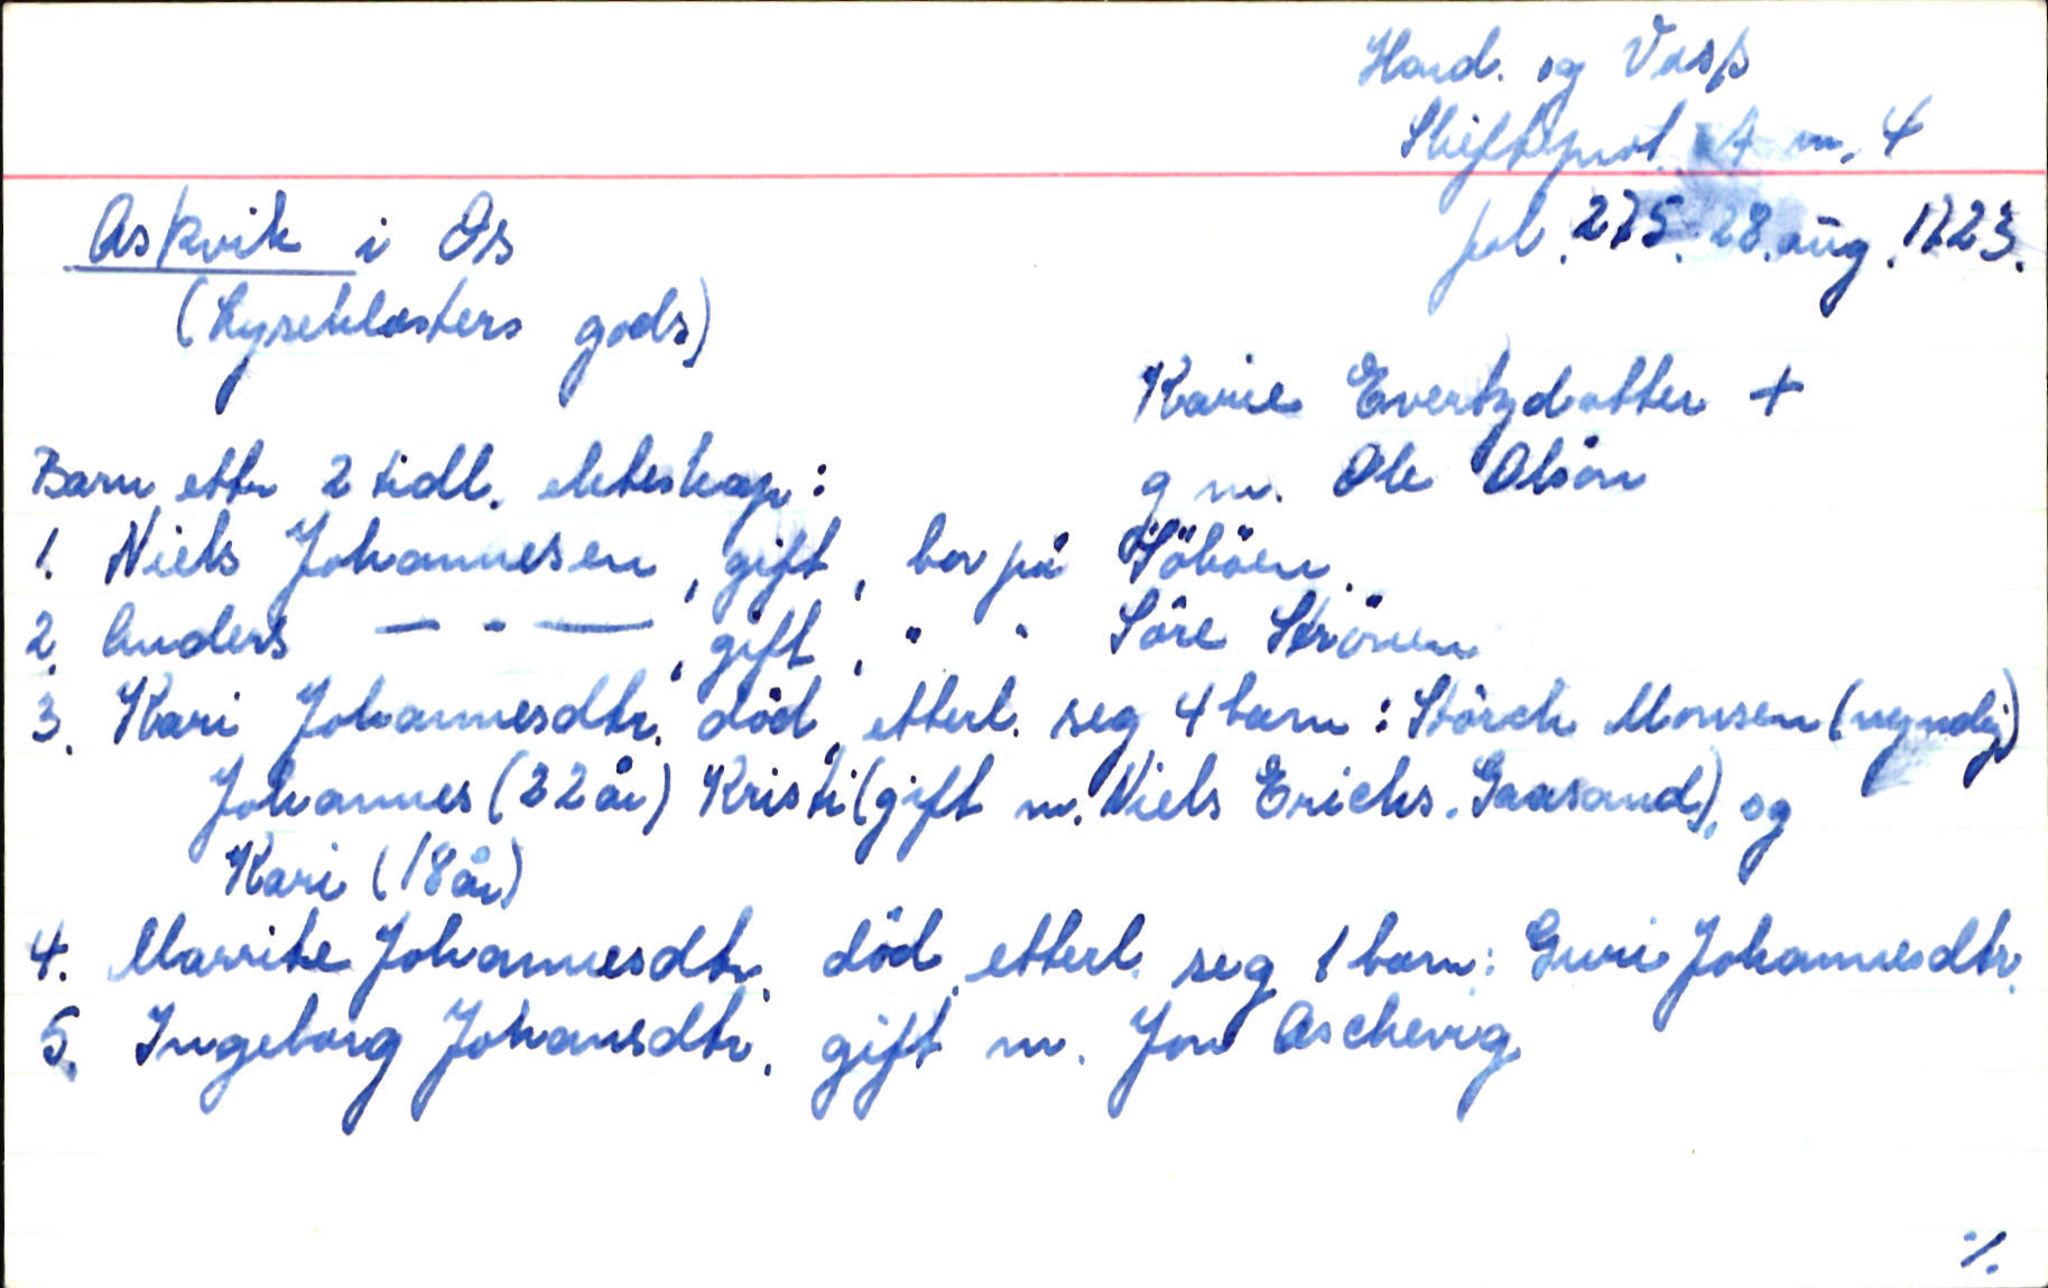 Hard. og Voss
Skifteprot. A nr. 4
fol. 275. 28. aug. 1723.
Askvik i Os
(Lyseklosters gods)
Karie Evertzdatter +
g m. Ole Olsön
Barn ettr 2 tidl. ekteskap:
1. Niels Johannesen, gift, bor på Söböen.
2. Anders — - —, gift, " " Söre Strönen
3. Kari Johannesdtr. död, etterl. seg 4 barn: Störck Monsen (myndig)
Johannes (22 år) Kristi (gift m. Niels Ericks. Gaasand), og
Kari (18 år)
4. Marrite Johannesdtr. död, etterl. seg 1 barn: Guri Johannesdtr.
5. Ingeborg Johansdtr. gift m. Jon Aschevig
·/.